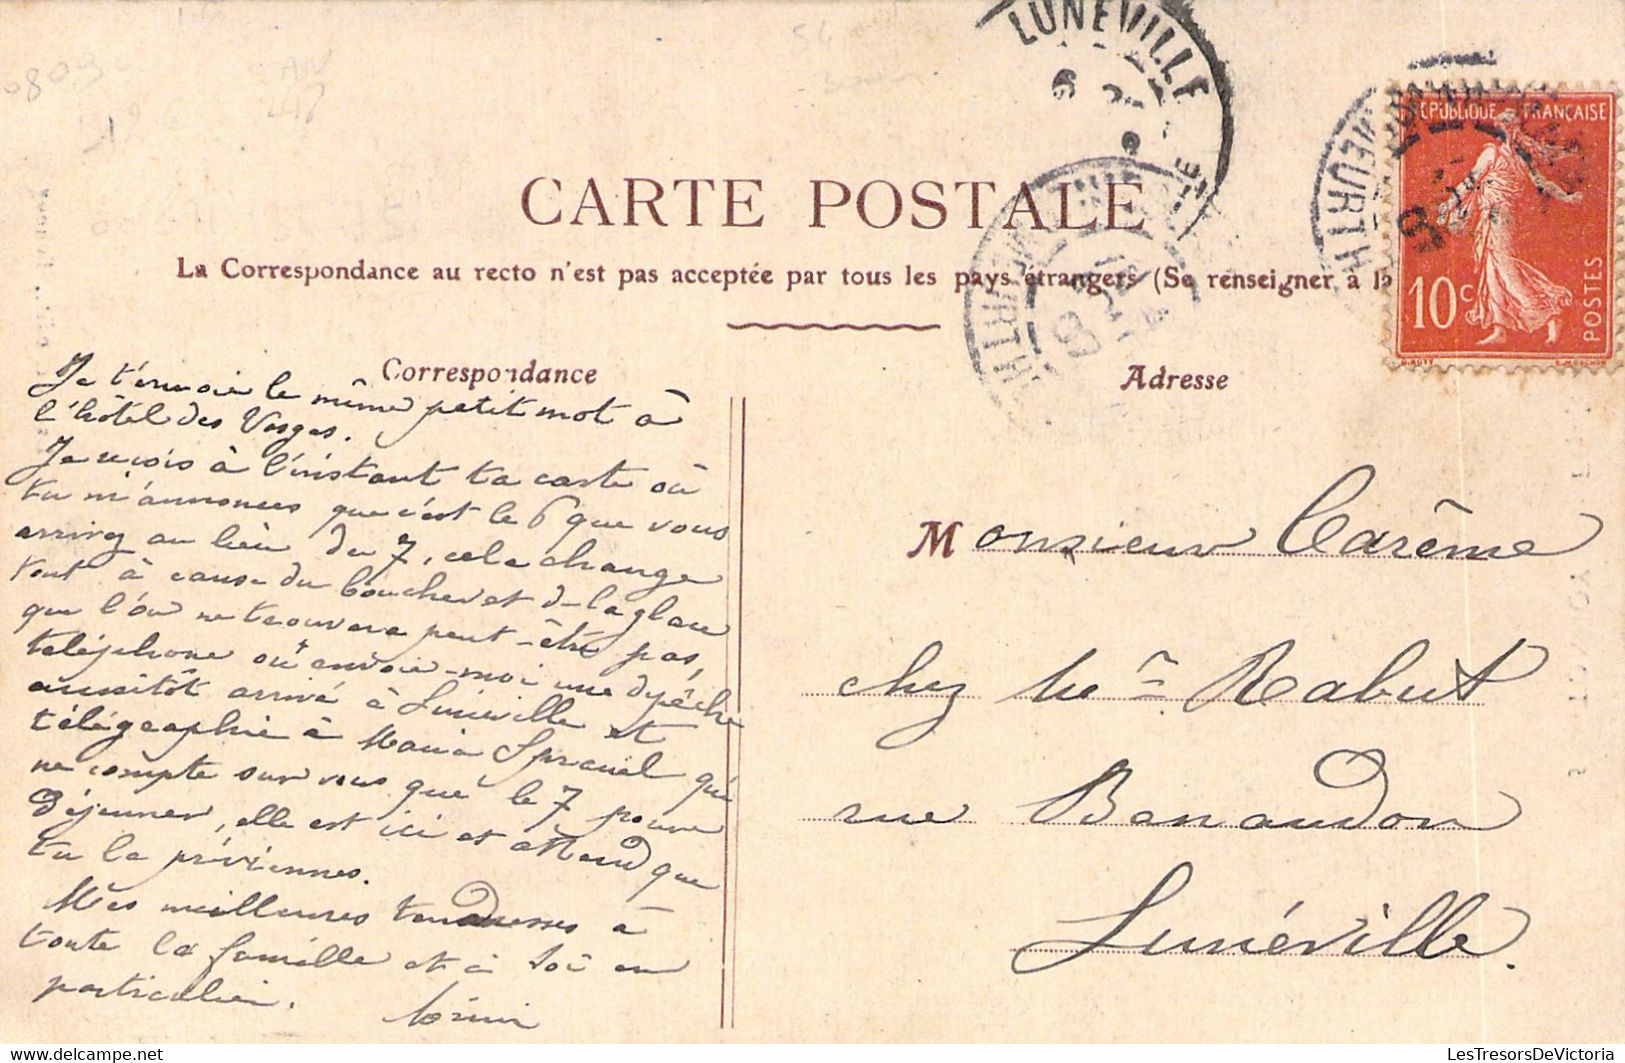 LUNEVILLE
RÉPUBLIQUE FRANÇAISE
10c
POSTES
CARTE POSTALE
La Correspondance au recto n'est pas acceptée par tous les pays étrangers (Se renseigner à la
Correspondance
Je t'envoie le même petit mot à
l'hôtel des Vosges.
Je reçois à l'instant ta carte où
tu m'annonces que c'est le 6 que vous
arrivez au lieu du 7, cela change
tout à cause du boucher et de la glace
que l'on ne trouvera peut-être pas,
téléphone ou envoie-moi une dépêche
aussitôt arrivé à Lunéville et
télégraphie à Maria Spraul qui
ne compte sur vous que le 7 pour
déjeuner, elle est ici et attend que
tu la préviennes.
Mes meilleures tendresses à
toute la famille et à toi en
particulier.
Adresse
Monsieur Carême
chez Me Rabut
rue Banaudon
Lunéville.
LesTresorsDeVictoria